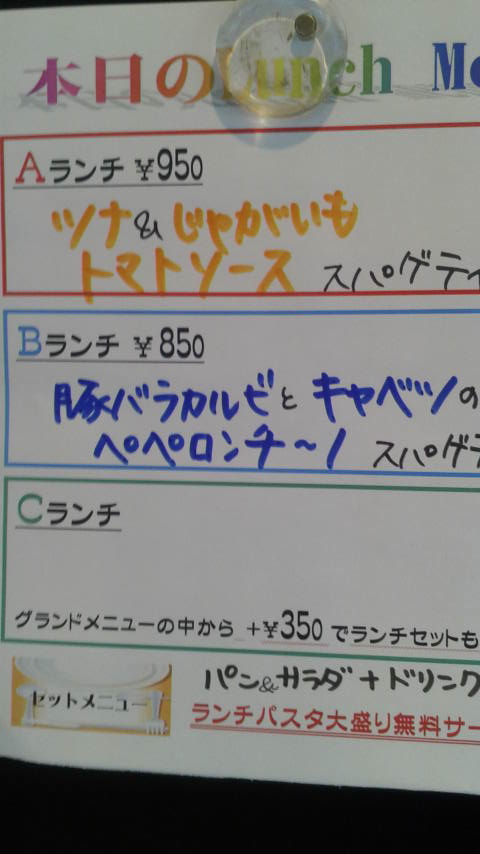 本日のLunch
Aランチ ¥950
ツナ&じゃがいも
トマトソース スパゲティ
Bランチ ¥850
豚バラカルビとキャベツの
ペペロンチ～ノ スパゲテ
Cランチ
グランドメニューの中から +¥350 でランチセットも
セットメニュー
パン&サラダ+ドリンク
ランチパスタ大盛り無料サー